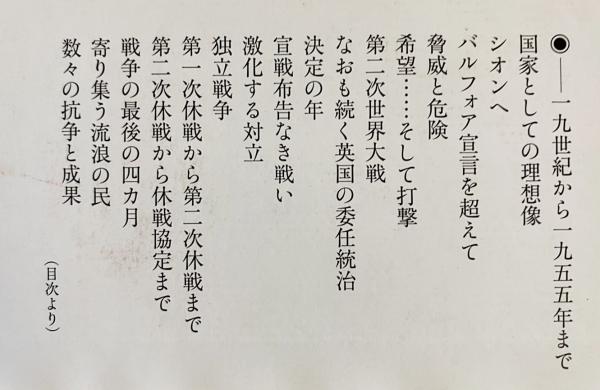 ◉――一九世紀から一九五五年まで
国家としての理想像
シオンへ
バルフォア宣言を超えて
脅威と危険
希望……そして打撃
第二次世界大戦
なおも続く英国の委任統治
決定の年
宣戦布告なき戦い
激化する対立
独立戦争
第一次休戦から第二次休戦まで
第二次休戦から休戦協定まで
戦争の最後の四カ月
寄り集う流浪の民
数々の抗争と成果
(目次より)